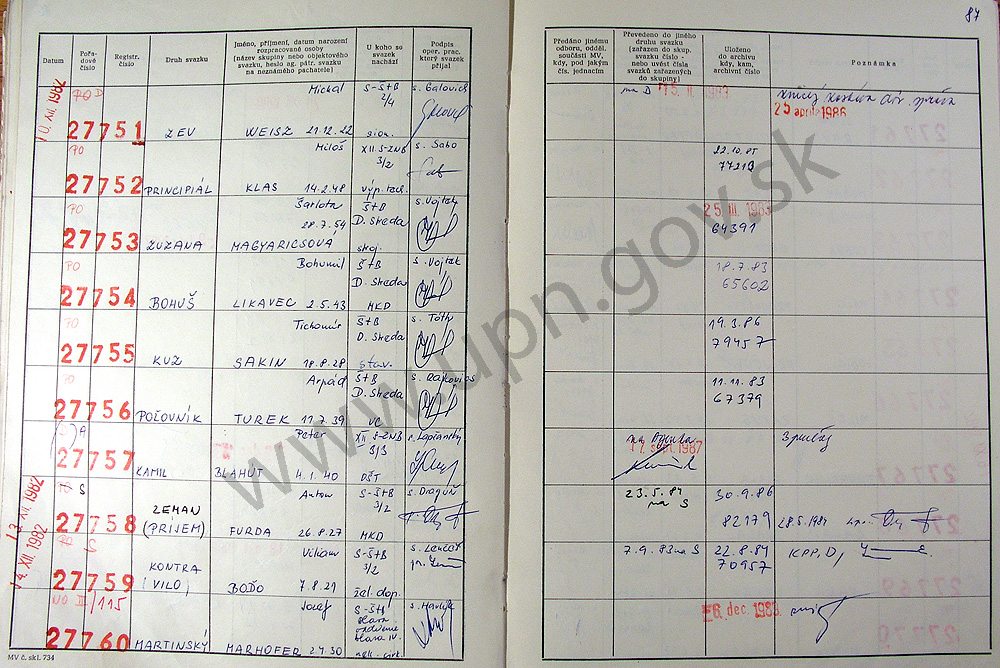 87
Datum
Pořadové číslo
Registr. číslo
Druh svazku
Jméno, příjmení, datum narození
rozpracované osoby
(název skupiny nebo objektového
svazku, heslo ag. pátr. svazku
na neznámého pachatele)
U koho se
svazek
nachází
Podpis
oper. prac.
který svazek
přijal
Předáno jinému
odboru, odděl.
součásti MV,
kdy, pod jakým
čís. jednacím
Převedeno do jiného
druhu svazku
(zařazen do skup.
svazku číslo -
nebo uvést čísla
svazků zařazených
do skupiny)
Uloženo
do archivu
kdy, kam,
archivní číslo
Poznámka
10. XII. 1982
PO D
Michal
S-ŠtB
2/4
s. Galovič
27751
ZEV
WEISZ 21.12.22
sion.
na D
15. II. 1983
25 apríla 1986
PO
Miloš
XII. S-ZNB
3/2
s. Sabo
27752
PRINCIPIÁL
KLAS 14.2.48
výp. tech.
22.10.85
77213
PO
Šarlota
28.7.54
ŠtB
D. Streda
s. Vojtek
27753
ZUZANA
MAGYARICSOVÁ
škoj.
25. III. 1983
64391
PO
Bohumil
ŠtB
D. Streda
s. Vojtek
27754
BOHUŠ
LIKAVEC 2.5.43
MKD
18.7.83
65602
PO
Tichomír
ŠtB
D. Streda
s. Tóth
27755
KUZ
SAKIN 18.8.28
stav.
19.3.86
79457
PO
Arpád
ŠtB
D. Streda
s. Rajkovics
27756
POĽOVNÍK
TUREK 11.7.39
VC
11.11.83
67379
A
Peter
XII S-ZNB
3/3
27757
KAMIL
BLAHUT 4.1.40
DŠT
17. sept. 1987
13. XII. 1982
PO S
Anton
S-ŠtB
3/2
s. Draguň
27758
ZEMAN
(PRÍJEM)
FURDA 26.8.27
MKD
23.5.84
na S
30.9.86
82179
28.5.1984
14. XII. 1982
PO S
Viliam
S-ŠtB
3/2
27759
KONTRA
(VILO)
BOĎO 7.8.21
žel. dop.
7.9.83 na S
22.8.84
70957
KPP, D,
NO II/115
Jozef
S-ŠtB
s. Havlík
27760
MARTINSKÝ
MARHOFER 2.4.30
6. dec. 1983
MV č. skl. 734
www.upn.gov.sk